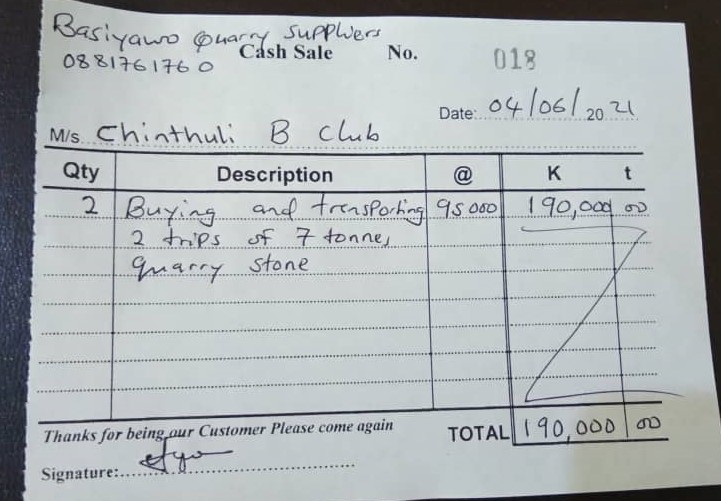 Basiyawo Quarry Suppliers
0881761760
Cash Sale No. 018
Date: 04/06/2021
M/s. Chinthuli B Club
Qty Description @ K t
2 Buying and transporting 95000 190,000 00
2 trips of 7 tonnes
quarry stone
Thanks for being our Customer Please come again
TOTAL 190,000 00
Signature: